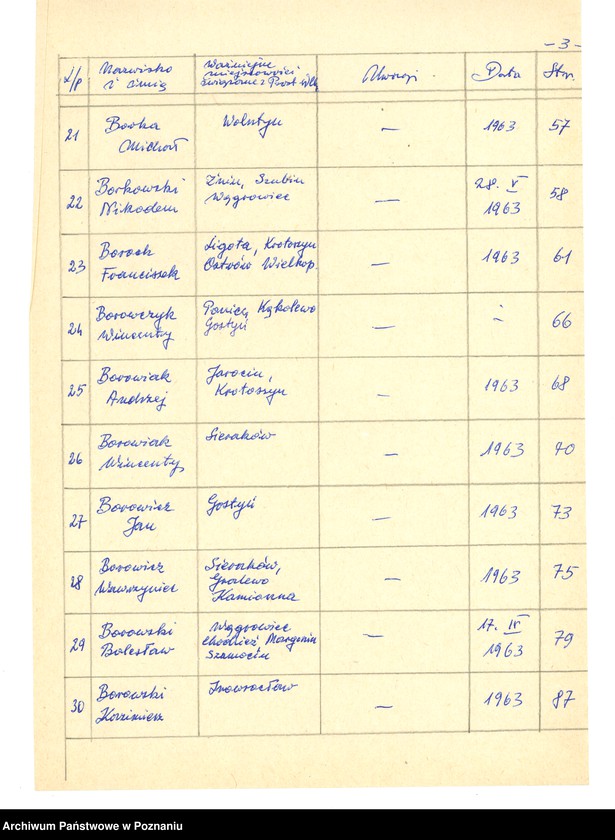 - 3 -
L/p
Nazwisko
i imię
Ważniejsze
miejscowości
związane z Powst. Wlkp
Uwagi
Data
Str.
21
Borka
Michał
Wolsztyn
—
1963
57
22
Borkowski
Nikodem
Żnin, Szubin
Wągrowiec
—
28. V
1963
58
23
Boroch
Franciszek
Ligota, Krotoszyn
Ostrów Wielkop.
—
1963
61
24
Borowczyk
Wincenty
Poniec, Kąkolewo
Gostyń
—
66
25
Borowiak
Andrzej
Jarocin,
Krotoszyn
—
1963
68
26
Borowiak
Wincenty
Sieraków
—
1963
70
27
Borowicz
Jan
Gostyń
—
1963
73
28
Borowicz
Wawrzyniec
Sieraków,
Kamionna
—
1963
75
29
Borowski
Bolesław
Wągrowiec
Chodzież Margonin
Szamocin
—
17. IV
1963
79
30
Borowski
Kazimierz
Inowrocław
—
1963
87
Archiwum Państwowe w Poznaniu